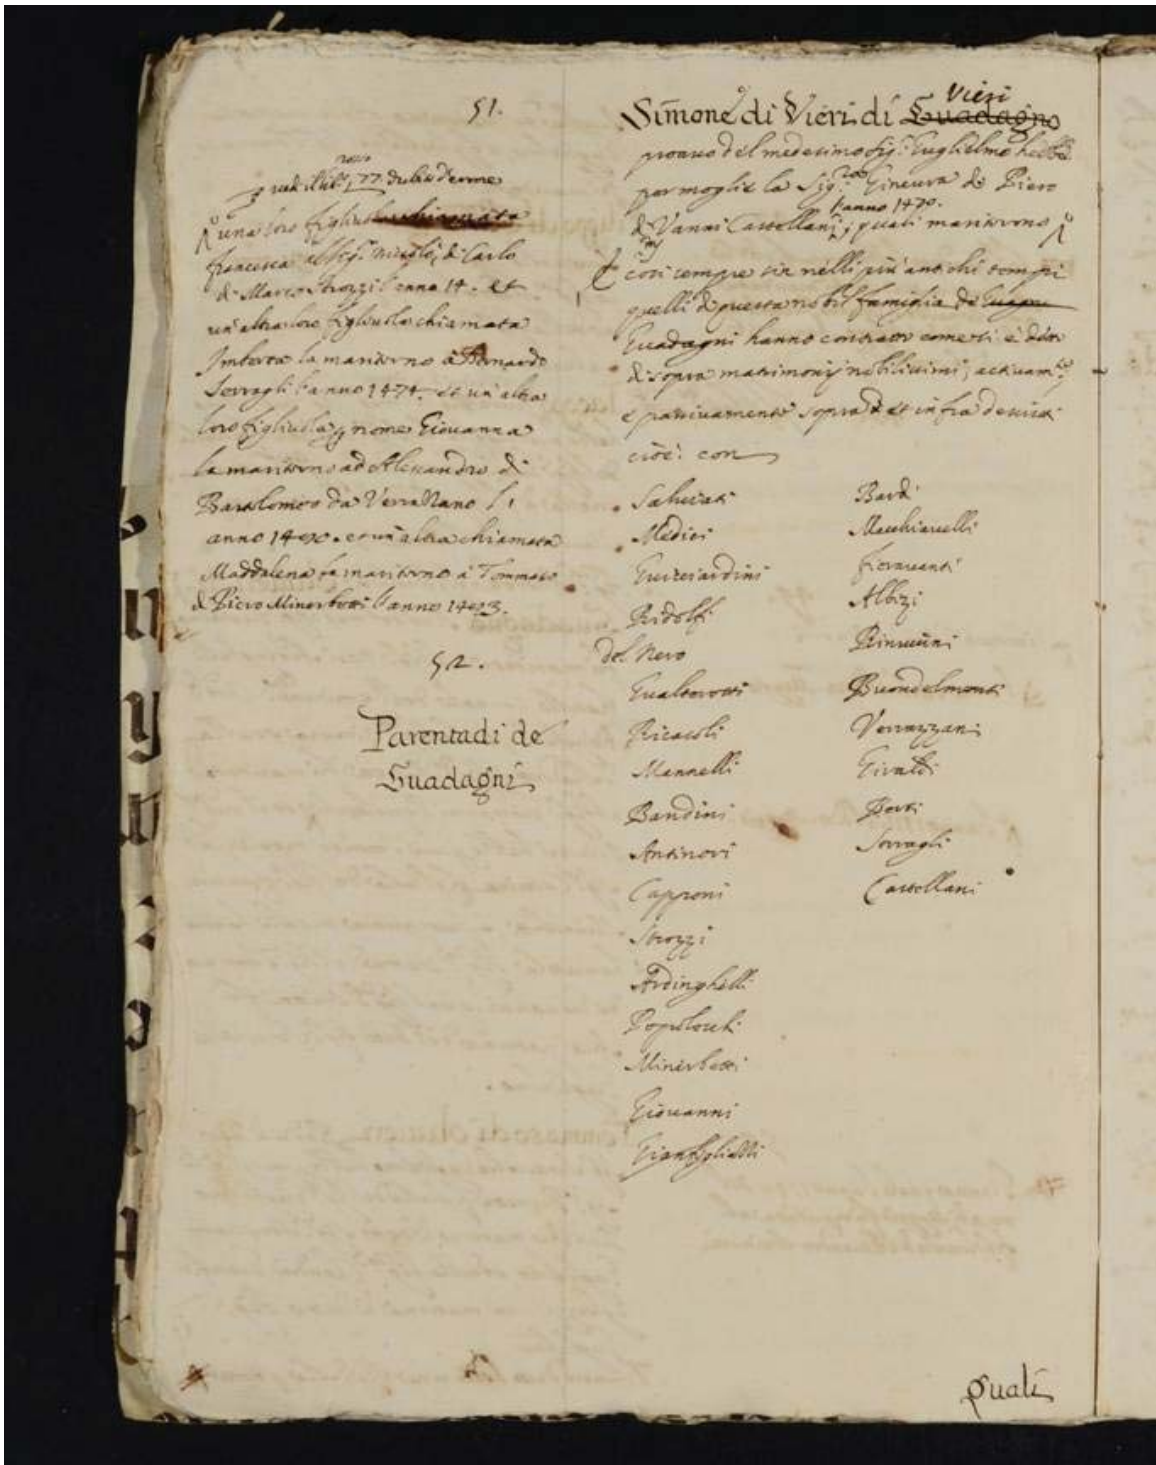 51.
una loro figliuola chiamata
francesca al Sig.r Niccolò, di Carlo
di Marco Strozzi l'anno 14. et
un'altra loro figliuola chiamata
la maritorno à Bernardo
Serragli l'anno 1474. et un'altra
loro figliuola p nome Giovanna
la maritorno ad Alessandro di
Bartolomeo da Verrazzano l'
anno 1490. et un'altra chiamata
Maddalena la maritorno à Tommaso
di Piero Minerbetti l'anno 1493.
52.
Parentadi de
Guadagni
Vieri
Simone di Vieri di Guadagno
proavo del medesimo Sig.r Guglielmo hebbe
per moglie la Sig.ra Ginevra di Piero
l'anno 1470.
di Vanni Castellani, quali maritorno
così sempre sin nelli più antichi tempi
quelli di questa nobil famiglia de
Guadagni hanno contratto come si è detto
di sopra matrimonij nobilissimi, activam.te
e passivamente sopra et infra
cioè: con
Salviati
Medici
Guicciardini
Ridolfi
del Nero
Gualterotti
Ricasoli
Mannelli
Bandini
Antinori
Capponi
Strozzi
Ardinghelli
Popoleschi
Minerbetti
Giovanni
Gianfigliazzi
Bardi
Macchiavelli
fioravanti
Albizi
Rinuccini
Buondelmonti
Verrazzani
Giraldi
Berti
Serragli
Castellani
Quali